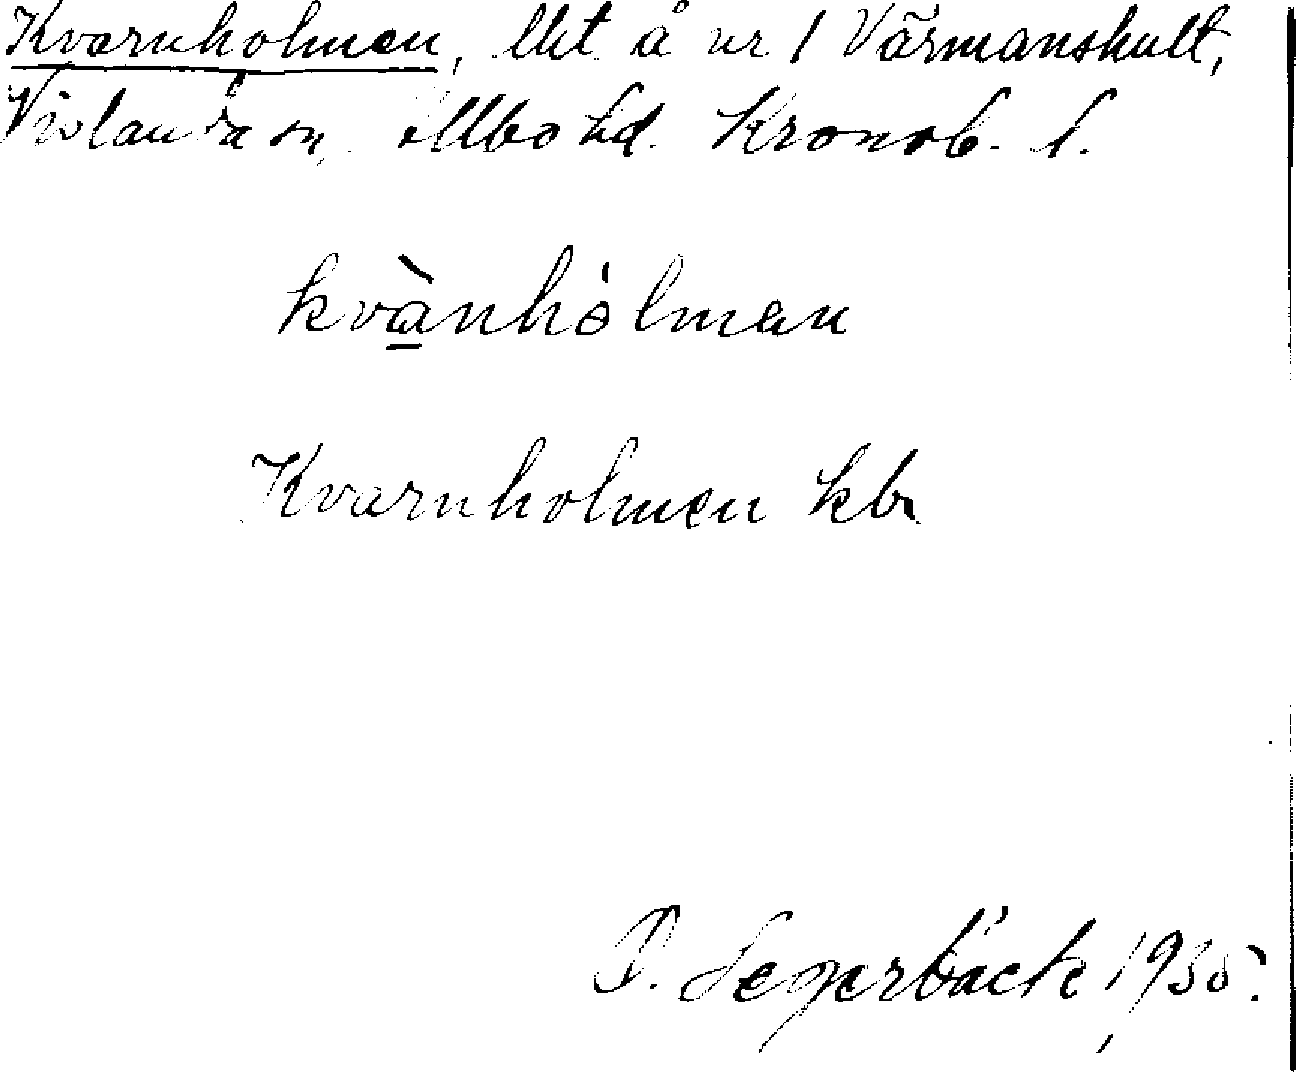 Kvarnholmen, lht å nr 1 Värmanshult,
Vislanda sn, Allbo hd. Kronob. l.
kvànhòlman
Kvarnholmen kbr
P. Segerbäck 1935.